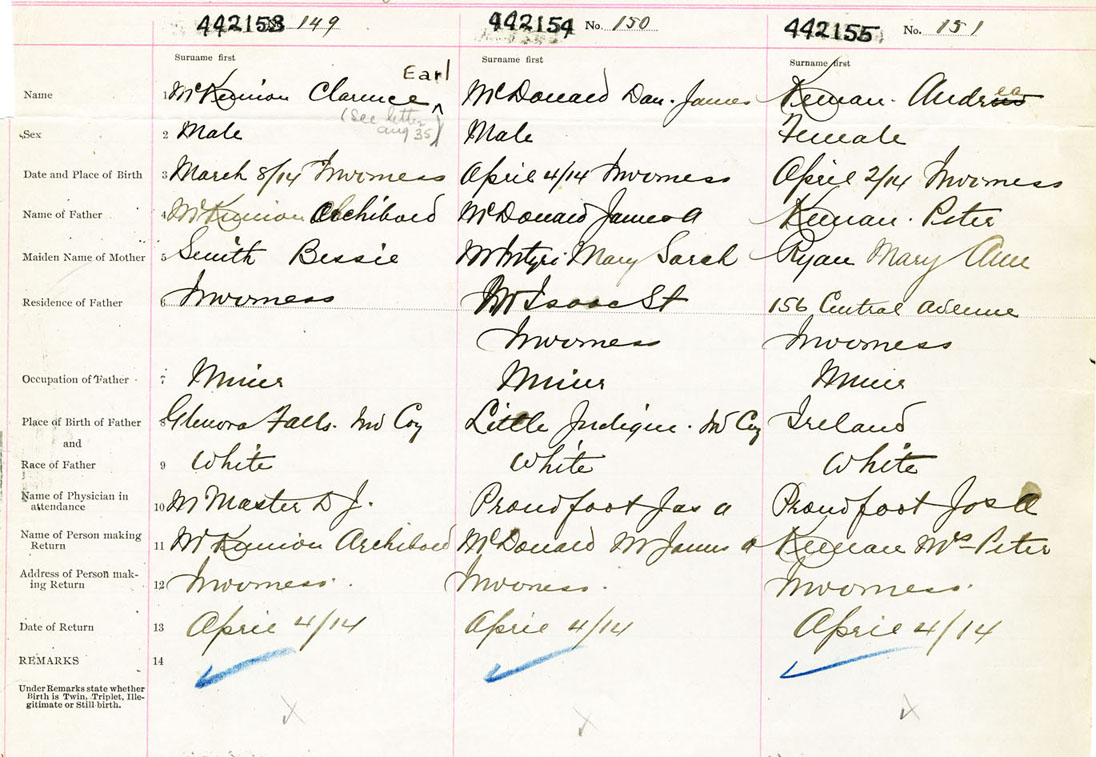 442153 149 442154 No. 150 442155 No. 151
Surname first Surname first Surname first
Earl
Name 1 McKinnion Clarence ^ McDonald Dan. James Keenan. Andrea
(See letter
aug 35)
Sex 2 Male Male Female
Date and Place of Birth 3 March 8/14 Inverness April 4/14 Inverness April 2/14 Inverness
Name of Father 4 McKinnion Archibald McDonald James A Keenan. Peter
Maiden Name of Mother 5 Smith Bessie McIntyre Mary Sarah Ryan Mary Ann
Residence of Father 6 Inverness McIsaac St 156 Central Avenue
Inverness Inverness
Occupation of Father 7 Miner Miner Miner
Place of Birth of Father 8 Glenora Falls. Inv Coy Little Judique. Inv Coy Ireland
and
Race of Father 9 White White White
Name of Physician in
attendance 10 McMaster D J. Proudfoot Jas A Proudfoot Jas A
Name of Person making
Return 11 McKinnion Archibald McDonald Mr James A Keenan Mrs Peter
Address of Person mak-
ing Return 12 Inverness. Inverness. Inverness.
Date of Return 13 April 4/14 April 4/14 April 4/14
REMARKS 14
Under Remarks state whether
Birth is Twin, Triplet, Ille-
gitimate or Still-birth.